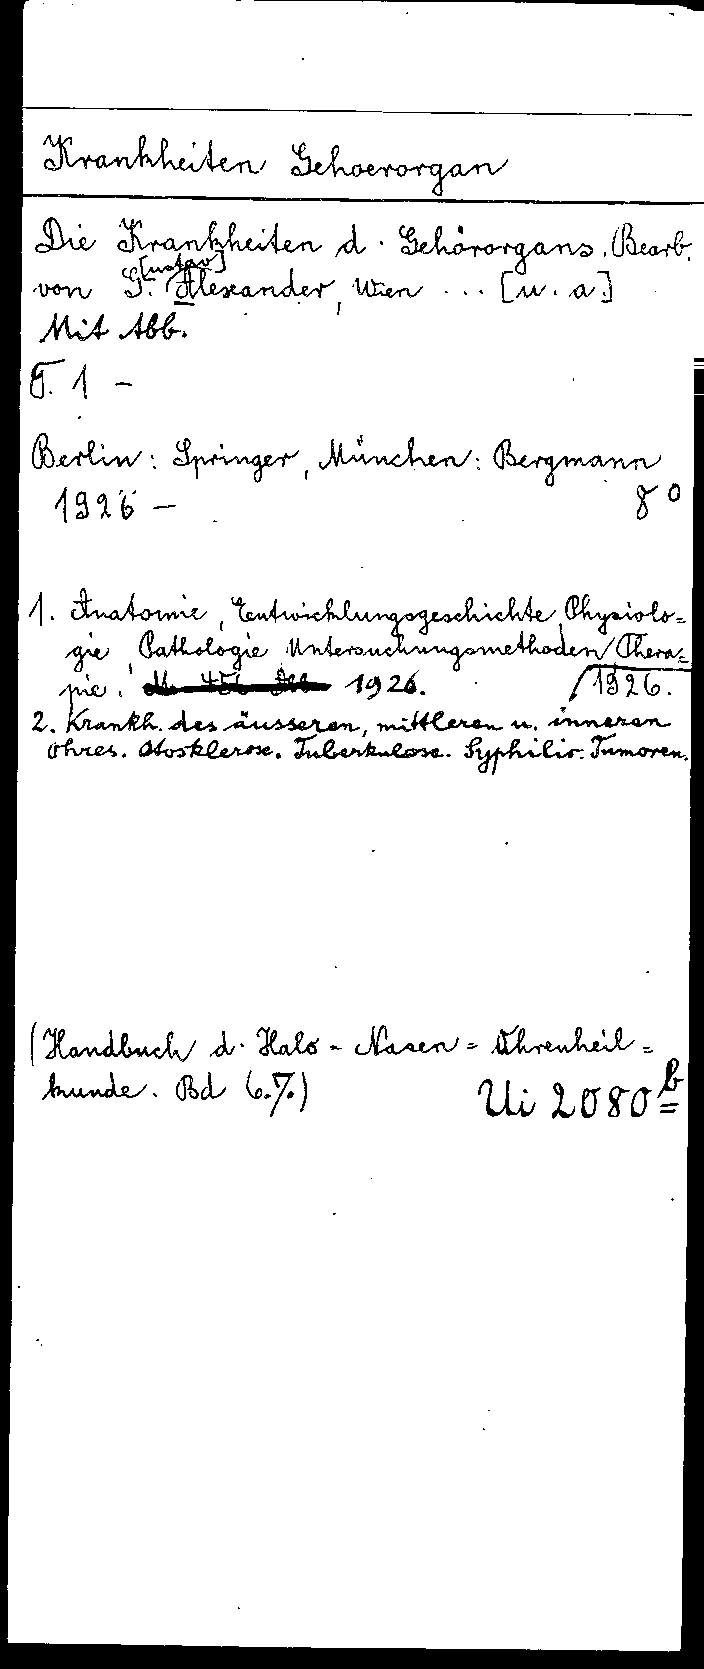 Krankheiten Gehoerorgan
Die Krankheiten d. Gehörorgans. Bearb.
von G.[ustav] Alexander, Wien ... [u. a.]
Mit Abb.
T. 1 -
Berlin: Springer, München: Bergmann
1926 - 8°
1. Anatomie, Entwicklungsgeschichte, Physiolo=
gie, Pathologie, Untersuchungsmethoden, Thera=
pie. 1926. 1926.
2. Krankh. des äusseren, mittleren u. inneren
Ohres. Otosklerose. Tuberkulose. Syphilis. Tumoren.
(Handbuch d. Hals - Nasen = Ohrenheil =
kunde. Bd 6.7.)
Ui 2080 b